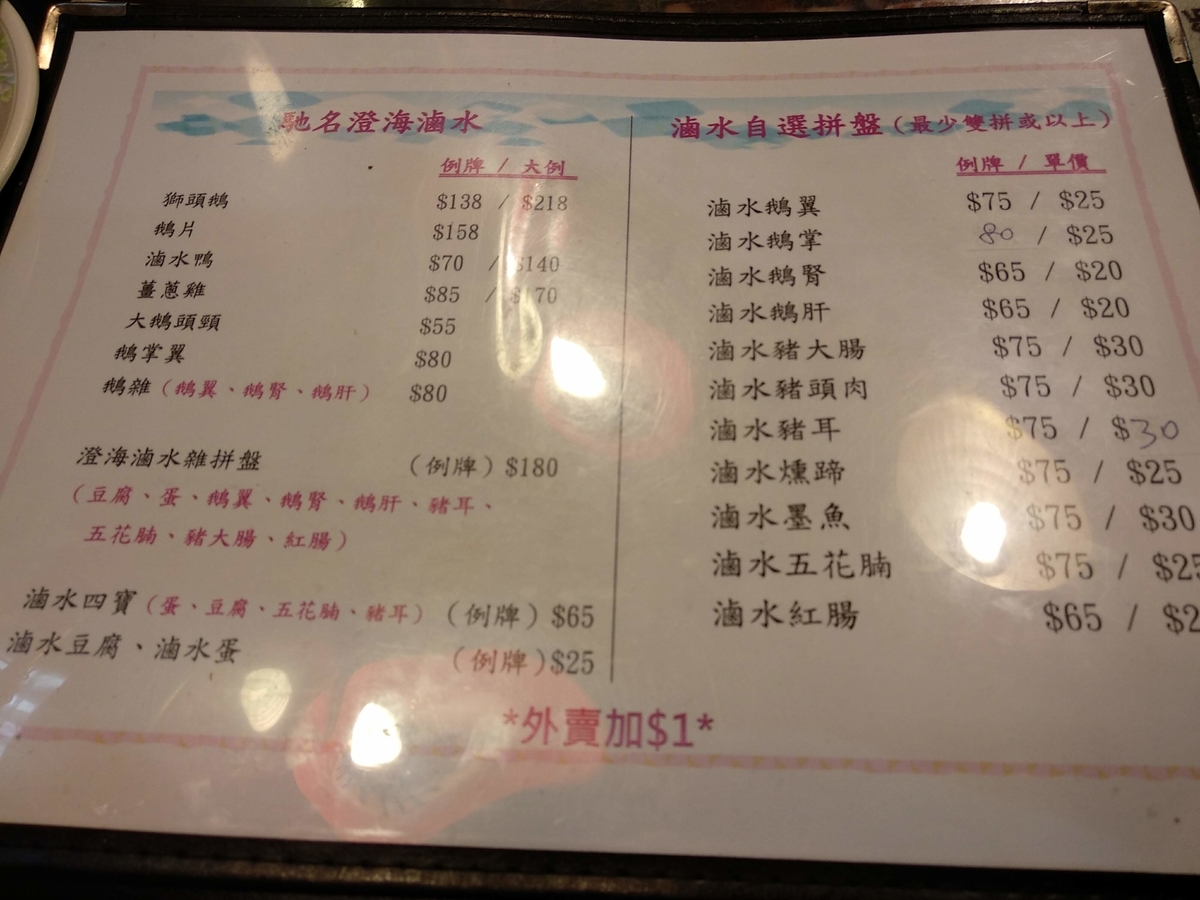 馳名澄海滷水
例牌 / 大例
獅頭鵝 $138 / $218
鵝片 $158
滷水鴨 $70 / $140
薑蔥雞 $85 / $170
大鵝頭頸 $55
鵝掌翼 $80
鵝雜（鵝翼、鵝腎、鵝肝） $80
澄海滷水雜拼盤 （例牌）$180
（豆腐、蛋、鵝翼、鵝腎、鵝肝、豬耳、
五花腩、豬大腸、紅腸）
滷水四寶（蛋、豆腐、五花腩、豬耳）（例牌）$65
滷水豆腐、滷水蛋 （例牌）$25
滷水自選拼盤（最少雙拼或以上）
例牌 / 單價
滷水鵝翼 $75 / $25
滷水鵝掌 80 / $25
滷水鵝腎 $65 / $20
滷水鵝肝 $65 / $20
滷水豬大腸 $75 / $30
滷水豬頭肉 $75 / $30
滷水豬耳 $75 / $30
滷水燻蹄 $75 / $25
滷水墨魚 $75 / $30
滷水五花腩 $75 / $25
滷水紅腸 $65 / $2
*外賣加$1*